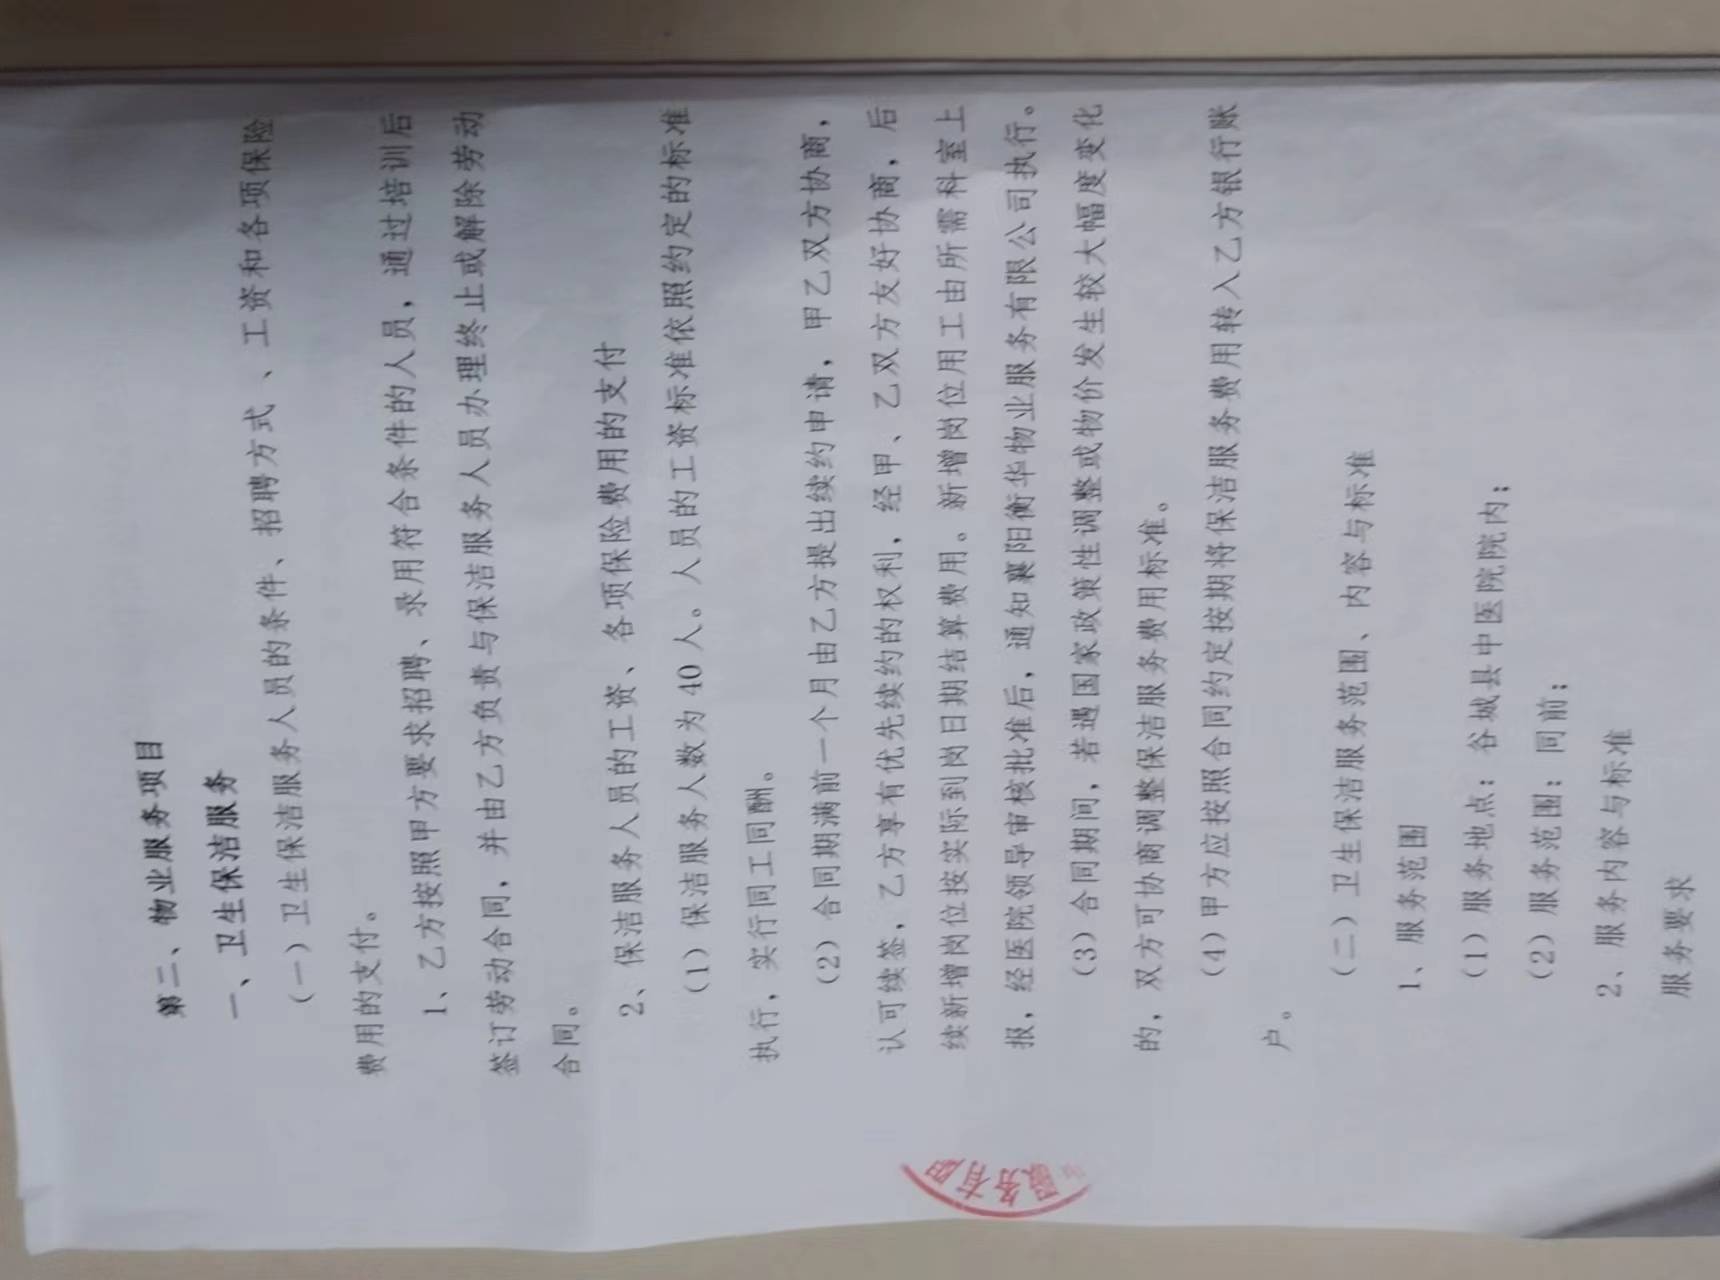 第二、物业服务项目
一、卫生保洁服务
（一）卫生保洁服务人员的条件、招聘方式、工资和各项保险
费用的支付。
1、乙方按照甲方要求招聘、录用符合条件的人员，通过培训后
签订劳动合同，并由乙方负责与保洁服务人员办理终止或解除劳动
合同。
2、保洁服务人员的工资、各项保险费用的支付
（1）保洁服务人数为 40 人。人员的工资标准依照约定的标准
执行，实行同工同酬。
（2）合同期满前一个月由乙方提出续约申请，甲乙双方协商，
认可续签，乙方享有优先续约的权利，经甲、乙双方友好协商，后
续新增岗位按实际到岗日期结算费用。新增岗位用工由所需科室上
报，经医院领导审核批准后，通知襄阳衡华物业服务有限公司执行。
（3）合同期间，若遇国家政策性调整或物价发生较大幅度变化
的，双方可协商调整保洁服务费用标准。
（4）甲方应按照合同约定按期将保洁服务费用转入乙方银行账
户。
（二）卫生保洁服务范围、内容与标准
1、服务范围
（1）服务地点：谷城县中医院院内；
（2）服务范围：同前；
2、服务内容与标准
服务要求
服务有限